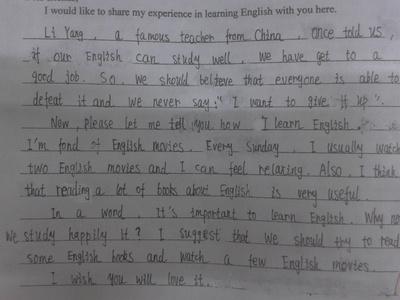 I would like to share my experience in learning English with you here.
Li Yang, a famous teacher from China, once told us,
if our English can study well, we have get to a
good job. So, we should believe that everyone is able to
defeat it and we never say: "I want to give it up".
Now, please let me tell you how I learn English.
I'm fond of English movies. Every Sunday, I usually watch
two English movies and I can feel relaxing. Also, I think
that reading a lot of books about English is very useful
In a word, It's important to learn English. Why not
we study happily it? I suggest that we should try to read
some English books and watch a few English movies.
I wish you will love it.